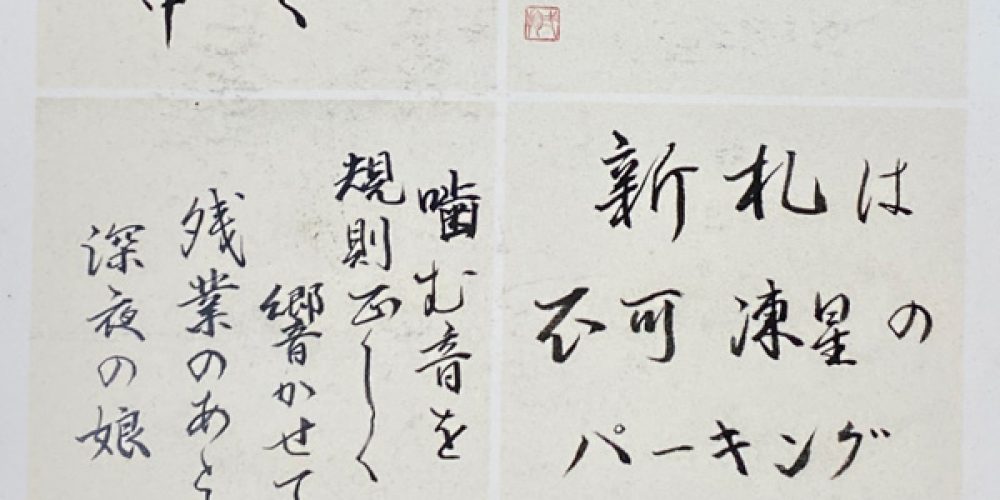 新札は
不可 凍星の
パーキング
噛む音を
規則正しく
響かせて
残業のあと
深夜の娘